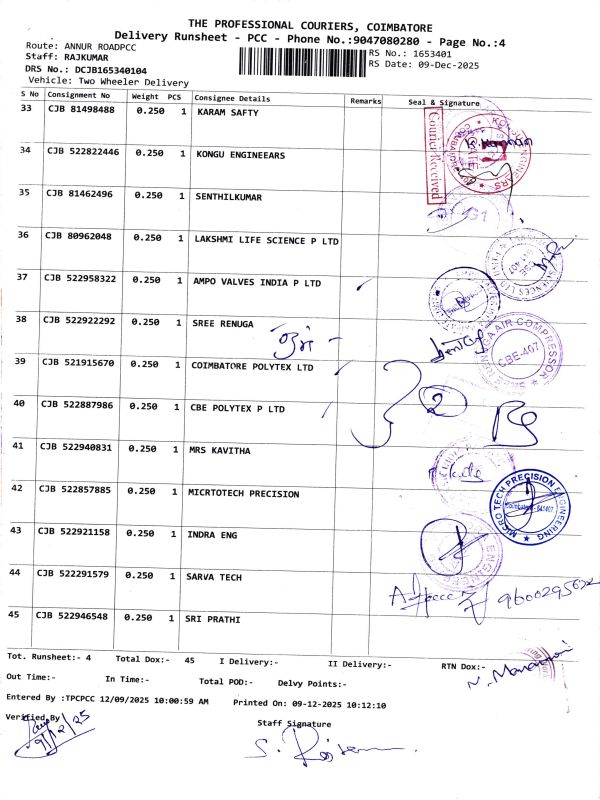 THE PROFESSIONAL COURIERS, COIMBATORE
Delivery Runsheet - PCC - Phone No.:9047080280 - Page No.:4
Route: ANNUR ROADPCC
RS No.: 1653401
Staff: RAJKUMAR
RS Date: 09-Dec-2025
DRS No.: DCJB165340104
Vehicle: Two Wheeler Delivery
S No Consignment No Weight PCS Consignee Details Remarks Seal & Signature
33 CJB 81498488 0.250 1 KARAM SAFTY
Courier Received
34 CJB 522822446 0.250 1 KONGU ENGINEEARS
35 CJB 81462496 0.250 1 SENTHILKUMAR
36 CJB 80962048 0.250 1 LAKSHMI LIFE SCIENCE P LTD
37 CJB 522958322 0.250 1 AMPO VALVES INDIA P LTD
38 CJB 522922292 0.250 1 SREE RENUGA
AIR COMPRESSOR
CBE-407
39 CJB 521915670 0.250 1 COIMBATORE POLYTEX LTD
40 CJB 522887986 0.250 1 CBE POLYTEX P LTD
2
41 CJB 522940831 0.250 1 MRS KAVITHA
42 CJB 522857885 0.250 1 MICRTOTECH PRECISION
MICRO TECH PRECISION ENGINEERING
Coimbatore - 641407
43 CJB 522921158 0.250 1 INDRA ENG
44 CJB 522291579 0.250 1 SARVA TECH
45 CJB 522946548 0.250 1 SRI PRATHI
Tot. Runsheet:- 4 Total Dox:- 45 I Delivery:- II Delivery:- RTN Dox:-
Out Time:- In Time:- Total POD:- Delvy Points:-
Entered By :TPCPCC 12/09/2025 10:00:59 AM Printed On: 09-12-2025 10:12:10
Verified By
Staff Signature
9/12/25